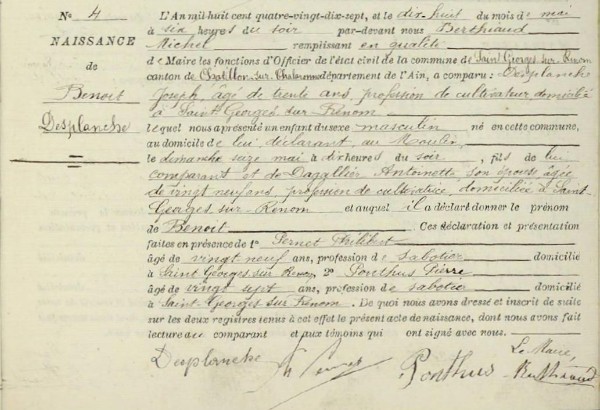 N° 4
NAISSANCE
de
Benoit
Desplanche
L'An mil huit cent quatre-vingt-dix-sept, et le dix huit du mois de mai
à six heures du soir par-devant nous Berthiaud
Michel remplissant en qualité
de Maire les fonctions d'Officier de l'état civil de la commune de Saint Georges sur Renom
canton de Chatillon sur Chalaronne département de l'Ain, a comparu : Desplanche
Joseph, âgé de trente ans, profession de cultivateur domicilié
à Saint Georges sur Renom
lequel nous a présenté un enfant du sexe masculin né en cette commune,
au domicile de lui déclarant au Moulin
le dimanche seize mai à dix heures du soir, fils de lui
comparant et de Dagallier Antoinette son épouse âgée
de vingt neuf ans, profession de cultivatrice, domiciliée à Saint
Georges sur Renom et auquel il a déclaré donner le prénom
de Benoit Ces déclaration et présentation
faites en présence de 1° Pernet Philibert
âgé de vingt neuf ans, profession de sabotier domicilié
à Saint Georges sur Renom, 2° Ponthus Pierre
âgé de vingt sept ans, profession de sabotier domicilié
à Saint-Georges sur Renom. De quoi nous avons dressé et inscrit de suite
sur les deux registres tenus à cet effet le présent acte de naissance, dont nous avons fait
lecture aux comparant et aux témoins qui ont signé avec nous.
Desplanche Pernet Ponthus
Le Maire,
Berthiaud